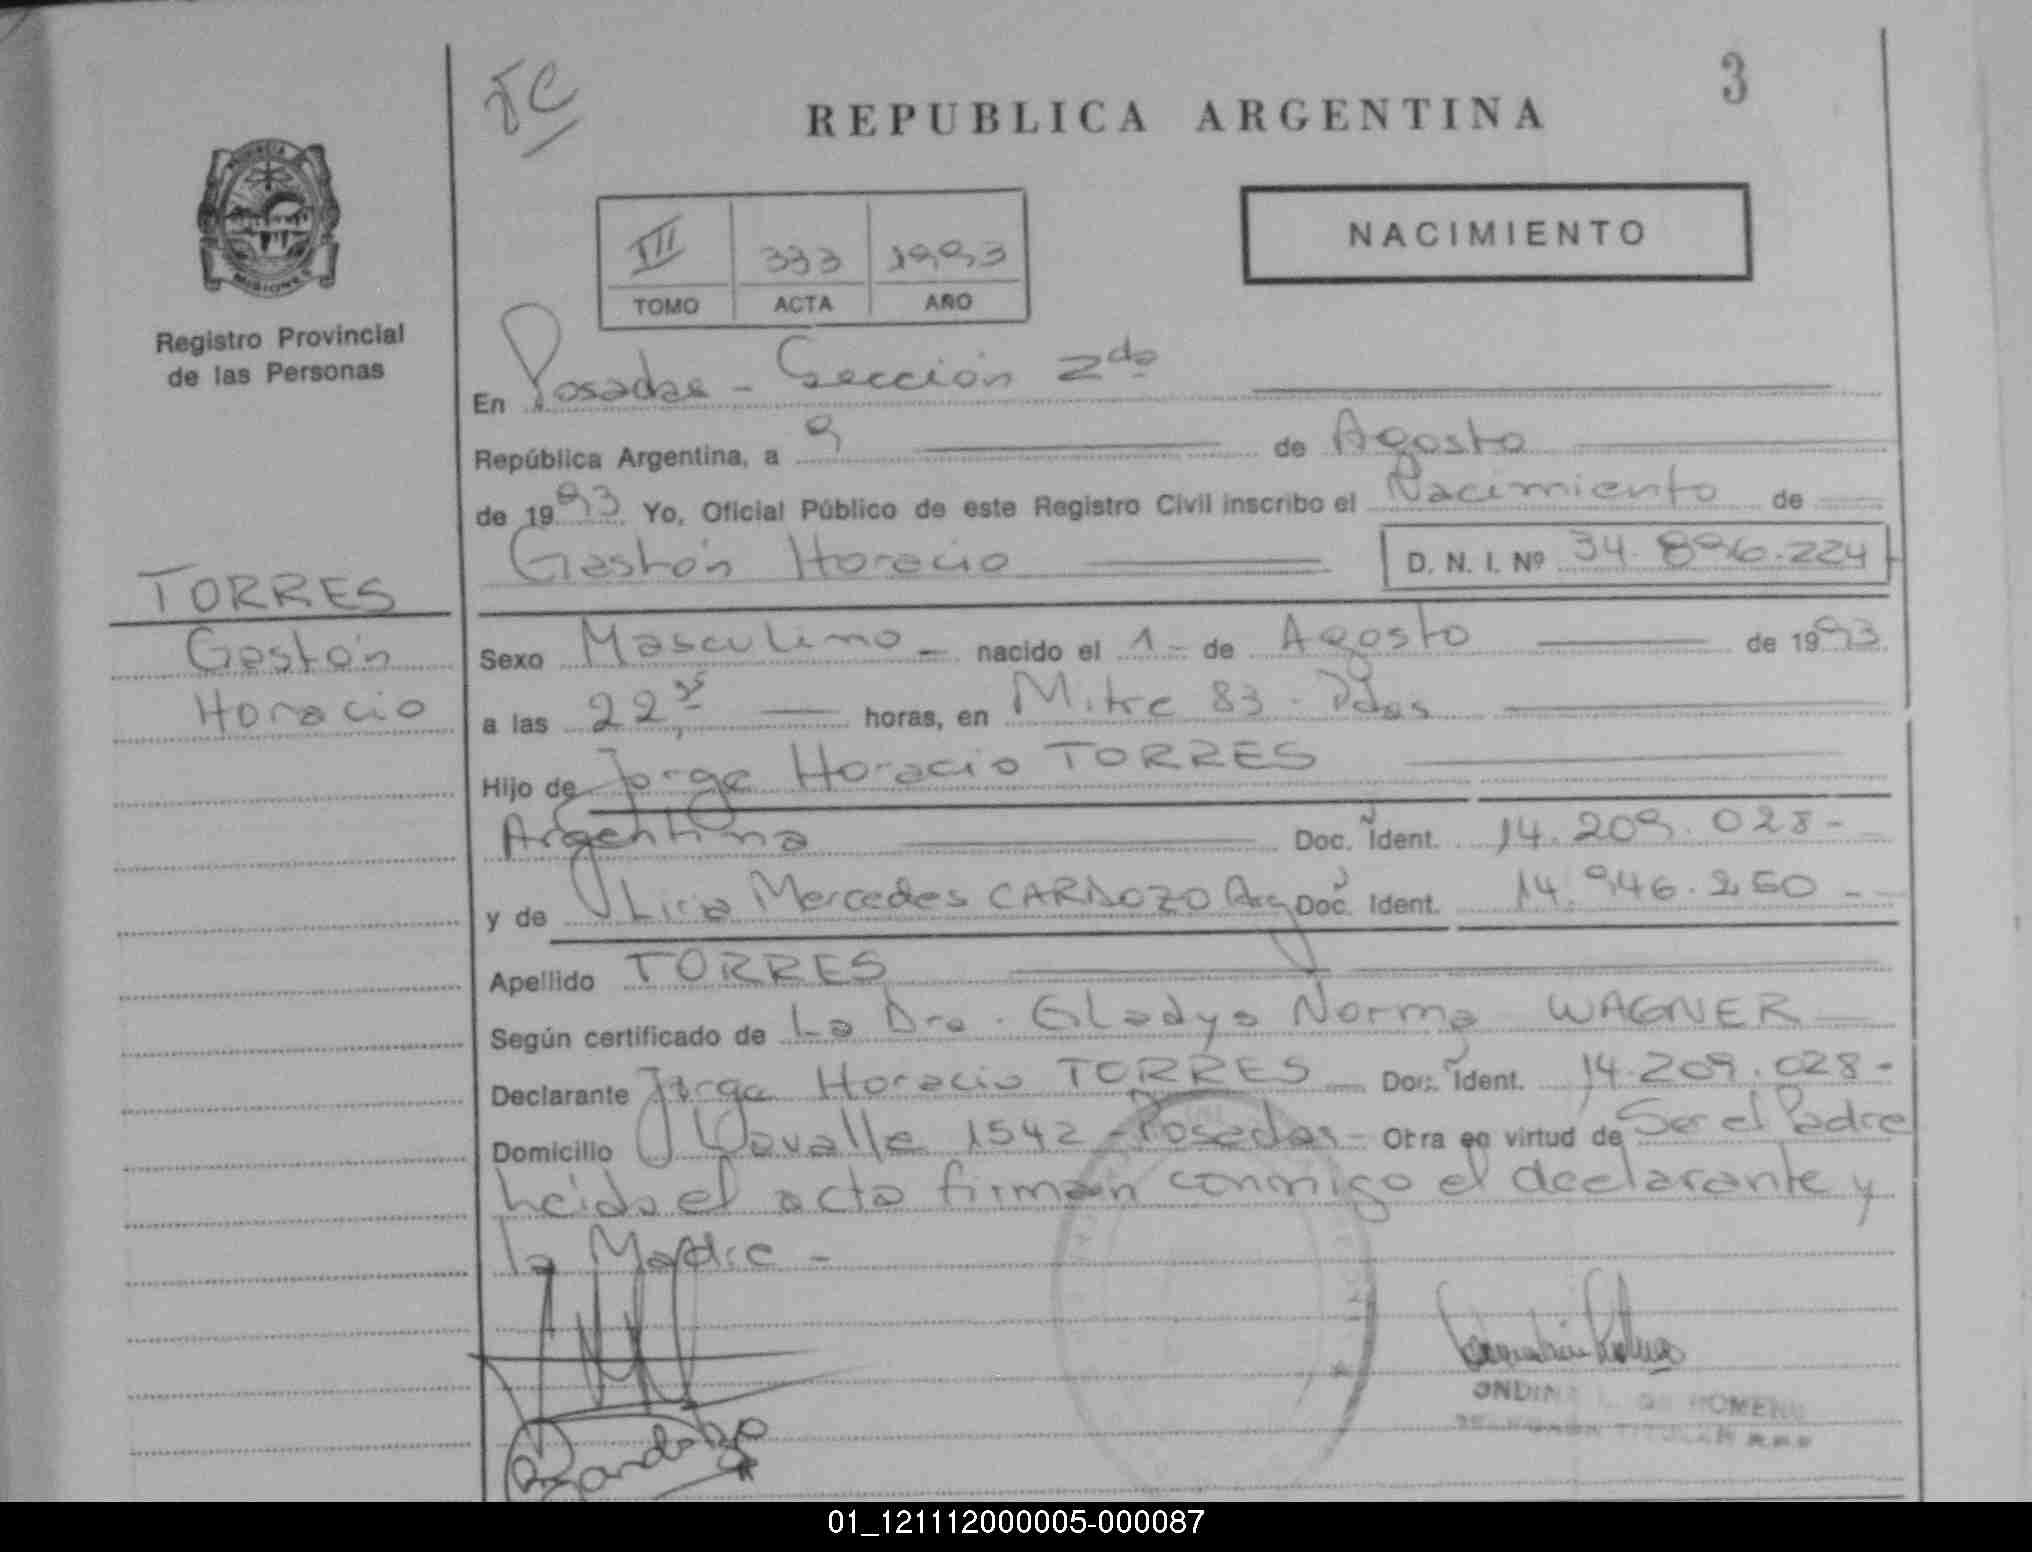 JC
3
REPUBLICA ARGENTINA
PROVINCIA
MISIONES
Registro Provincial
de las Personas
III 333 1993
TOMO ACTA AÑO
NACIMIENTO
En Posadas - Sección 2da
República Argentina, a 9 de Agosto
de 1993 Yo, Oficial Público de este Registro Civil inscribo el Nacimiento de
Gastón Horacio D. N. I. Nº 34.896.224
TORRES
Gastón
Horacio
Sexo Masculino - nacido el 1 - de Agosto de 1993
a las 22,35 horas, en Mitre 83 - Pdas
Hijo de Jorge Horacio TORRES
Argentina Doc. Ident. 14.209.028-
y de Mercedes CARDOZO Arg Doc. Ident. 14.946.250 -
Apellido TORRES
Según certificado de La Dra. Gladys Norma WAGNER
Declarante Jorge Horacio TORRES Doc. Ident. 14.209.028-
Domicilio Lavalle 1542 - Posadas - Obra en virtud de Ser el Padre
Leida el acta firman conmigo el declarante y
la Madre -
01_121112000005-000087